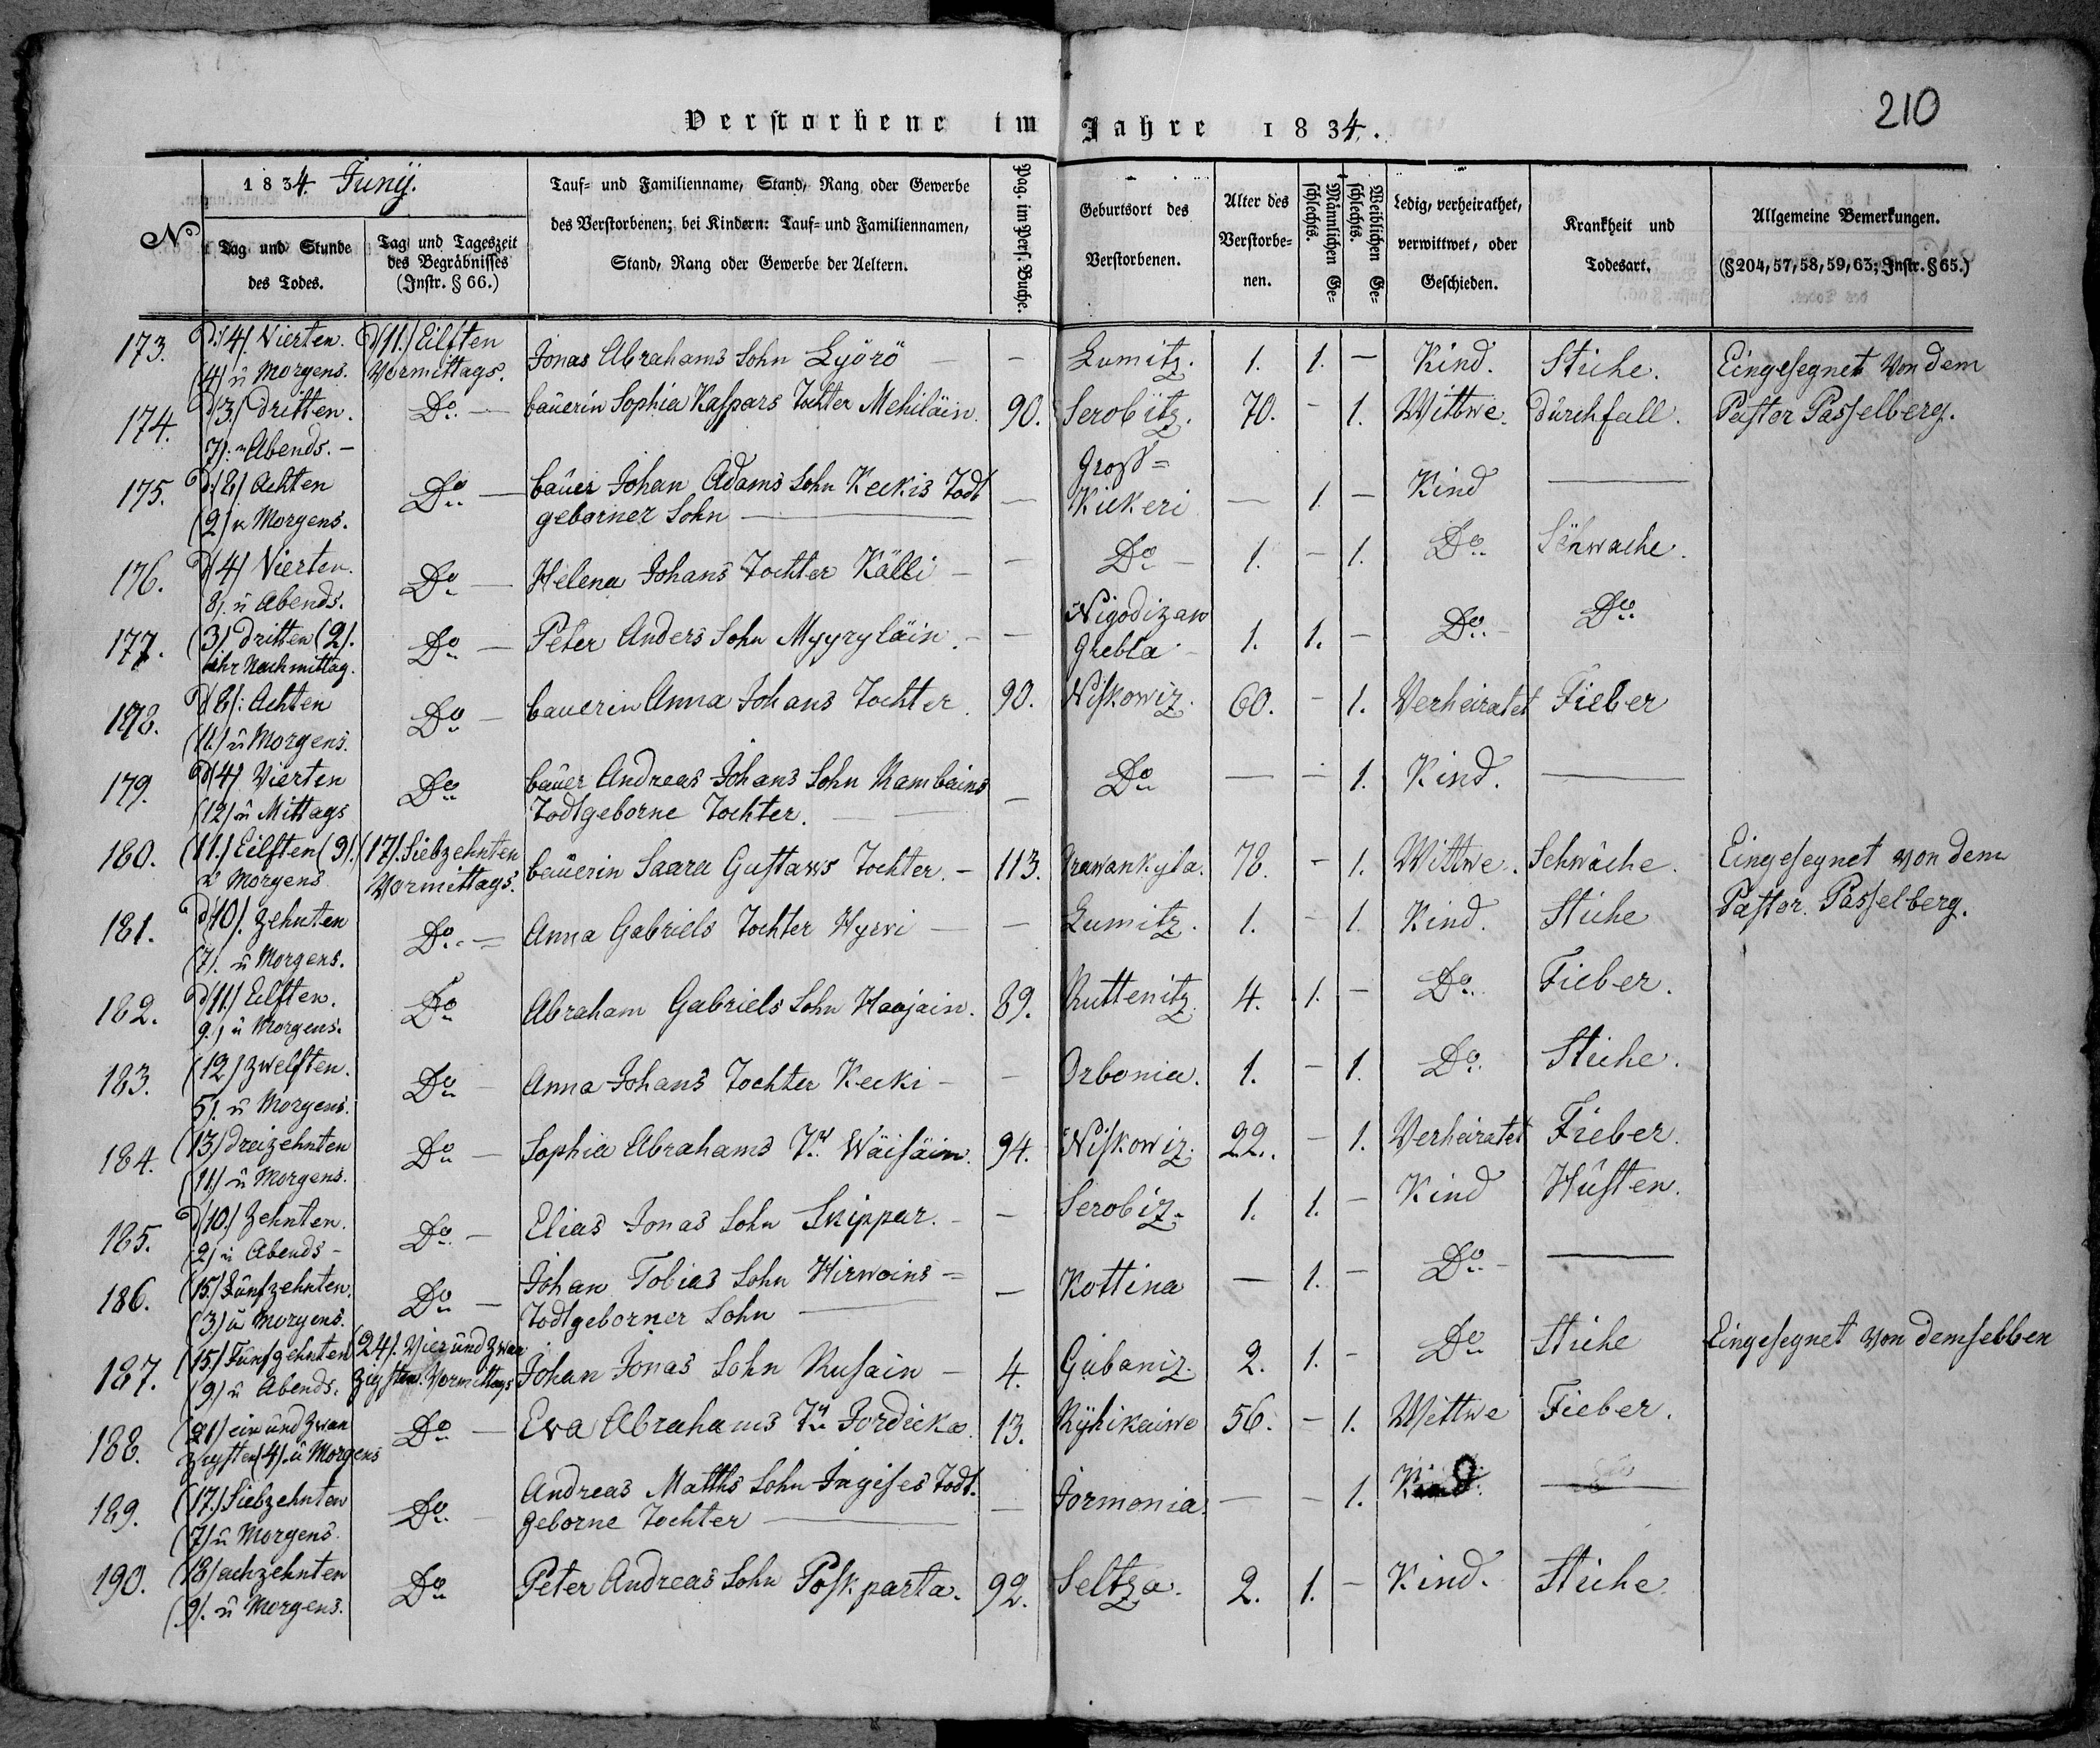 210
Verstorbene im Jahre 1834.
N
1834. Junij.
Tag und Stunde
des Todes.
Tag und Tageszeit
des Begräbnisses
(Instr. § 66.)
Tauf- und Familienname, Stand, Rang oder Gewerbe
des Verstorbenen; bei Kindern: Tauf- und Familiennamen,
Stand, Rang oder Gewerbe der Aeltern.
Pag. im Pers. Buche.
Geburtsort des
Verstorbenen.
Alter des
Verstorbe-
nen.
Männlichen Ge-
schlechts.
Weiblichen Ge-
schlechts.
Ledig, verheirathet,
verwittwet, oder
Geschieden.
Krankheit und
Todesart.
Allgemeine Bemerkungen.
(§ 204, 57, 58, 59, 63; Instr. § 65.)
173. d. (4). Vierten. d (11.) Eilften Jonas Abrahams Sohn Lyörö — — Lumitz. 1. 1. — Kind. Stiche. Eingesegnet von dem
(4) ü Morgens. Vormittags.
174. d (3.) dritten. Do — baüerin Sophia Kaspars Tochter Mehiläin. 90. Serobitz. 70. - 1. Wittwe. dürchfall. Pastor Passelberg.
7). ü Abends. —
175. d. (8.) Achten Do — baüer Johan Adams Sohn Keckis Todt — Gross=
(9) u Morgens. geborner Sohn — Kiekeri — 1. — Kind —
176. d (4) Vierten. Do — Helena Johans Tochter Källi — — Do — 1. — 1. Do Schwache.
8). ü Abends.
177. (3). dritten (2). Do — Peter Anders Sohn Myyryläin. — — Nigodizaw
uhr Nachmittag. Grebla — 1. 1. — Do — Do
178. d (8): Achten Do — bauerin Anna Johans Tochter. 90. Niskowiz. 60. - 1. Verheiratet Fieber
(11.) ü Morgens.
179. d (4) Vierten Do baüer Andreas Johans Sohn Rambains — Do — — 1. Kind. —
(12) ü Mittags Todtgeborne Tochter. —
180. (11.) Eilften (9). (17). Siebzehnten baüerin Saara Gustaws Tochter. — 113. Arawankyla. 78. - 1. Wittwe. Schwäche. Eingesegnet von dem
ü Morgens Vormittags.
181. d (10). Zehnten Do. = Anna Gabriels Tochter Hyrvi — — Lumitz. 1. - 1. Kind. Stiche Pastor. Passelberg.
(7). ü Morgens.
182. d (11.) Eilften. Do Abraham Gabriels Sohn Haajain. 89. Ruttenitz 4. 1. — Do Fieber.
9.) ü Morgens.
183. (12) zwelften. Do — Anna Johans Tochter Kecki — — Orbonia. 1. - 1. Do Stiche.
5). ü Morgens.
184. (13) dreizehnten Do — Sophia Abrahams Tr. Wäisäin. 94. Niskowiz. 22. - 1. Verheiratet Fieber.
(11.) ü Morgens.
185. d (10.) Zehnten. Do — Elias Jonas Sohn Skippar. — — Serobiz. 1. 1. — Kind Hüsten.
(2) ü Abends —
186. (15.) Fünfzehnten. Do — Johan Tobias Sohn Hirwoins = — Kottina — 1. — Do — —
(3.) ü Morgens. Todtgeborner Sohn —
187. (15.) Fünfzehnten (24). Vier und Zwan Johan Jonas Sohn Rusain — 4. Gubaniz. 2. 1. - Do Stiche Eingesegnet von demselben
(9) ü Abends. zigsten. Vormittags
188. (21) ein und Zwan Do — Eva Abrahams Tr. Jordicka. 13. Ryhikaiwo 56. - 1. Wittwe Fieber.
zigsten (4). ü Morgens
189. (17.) Siebzehnten Do — Andreas Matths Sohn Ingises Todt. — Jormonia. — - 1. Kind. —
(7) ü Morgens. geborne Tochter —
190. (18) achzehnten Do Peter Andreas Sohn Poskparta. 92. Seltza. 2. 1. — Kind. Stiche.
(9). ü Morgens.